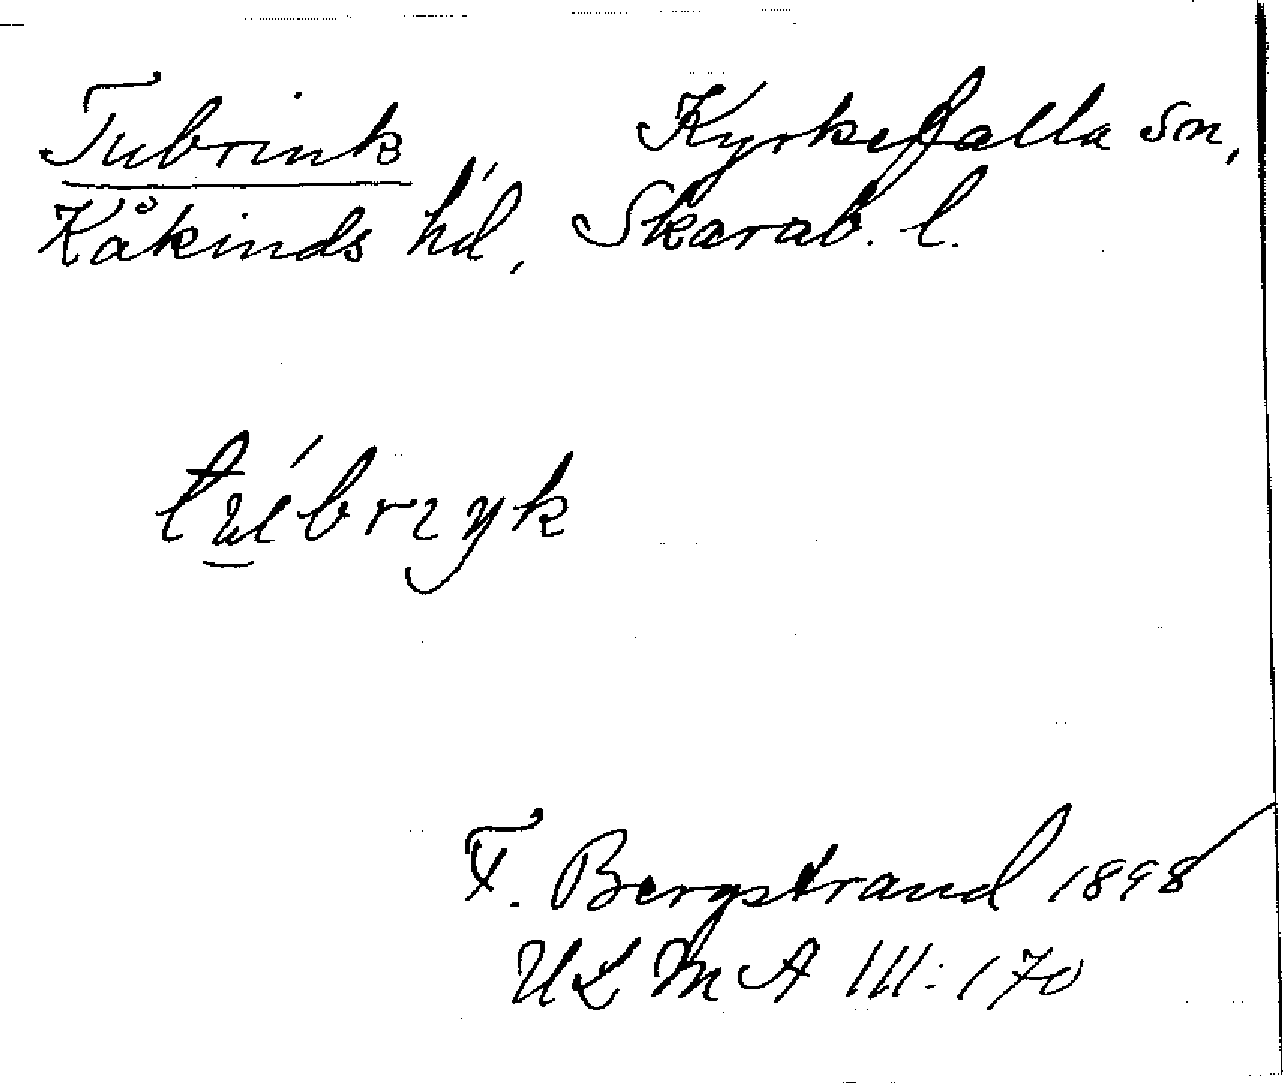 Tubrink Kyrkefalla sn,
Kåkinds hd, Skarab. l.
F. Bergstrand 1898
ULMA III:170